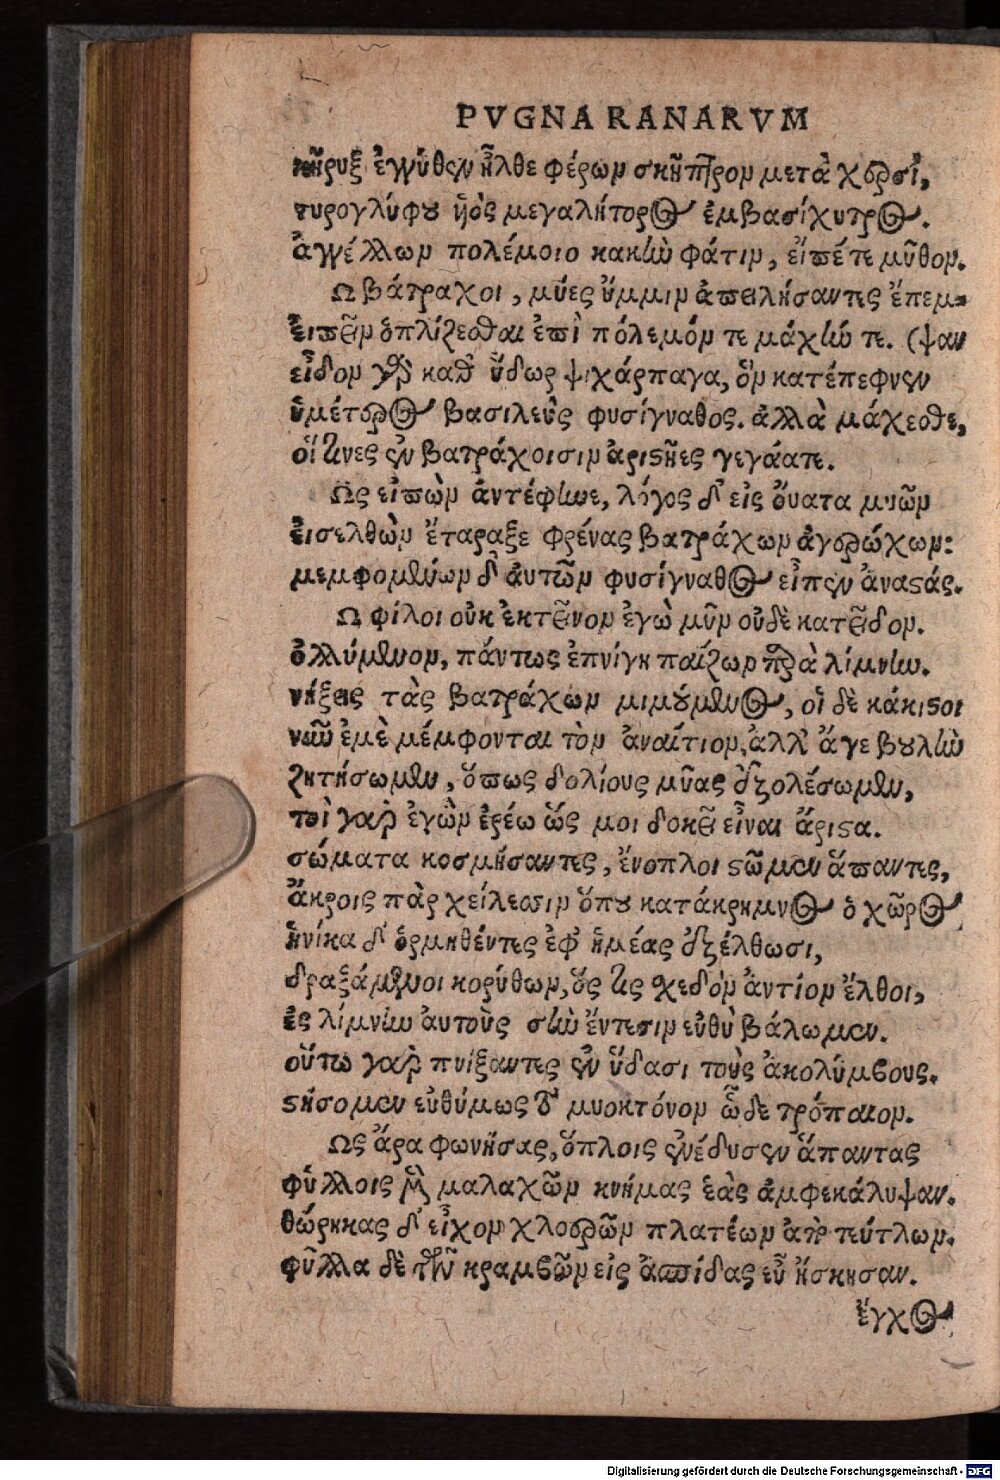 PVGNA RANARVM
κῆρυξ ἐγγύθεν ἦλθε φέρων σκῆπτρον μετὰ χερσὶ,
τυρογλύφου ὑιὸς μεγαλήτορος ἐμβασίχυτρος.
ἀγγέλλων πολέμοιο κακὴν φάτιν, εἴπέτε μῦθον.
Ω βάτραχοι, μύες ὔμμιν ἀπειλήσαντες ἔπεμ-
εἰπεῖν ὁπλίζεσθαι ἐπὶ πόλεμόν τε μάχην τε. (ψαν
εἶδον γὰρ καθ' ὕδωρ ψιχάρπαγα, ὃν κατέπεφνεν
ὑμέτερος βασιλεὺς φυσίγναθος. ἀλλὰ μάχεσθε,
οἵ τινες ἐν βατράχοισιν ἀριστῆες γεγάατε.
Ως εἰπὼν ἀντέφηνε, λόγος δ' εἰς ὄυατα μυῶν
ἐισελθὼν ἔταραξε φρένας βατράχων ἀγερώχων:
μεμφομένων δ' ἀυτῶν φυσίγναθος εἶπεν ἀναστάς.
Ω φίλοι οὐκ ἔκτεινον ἐγὼ μῦν οὐδὲ κατεῖδον.
ὀλλύμενον, πάντως ἐπνίγη παίζων παρὰ λίμνην.
νήξεις τὰς βατράχων μιμούμενος, οἱ δὲ κάκιστοι
νῦν ἐμὲ μέμφονται τὸν ἀναίτιον, ἀλλ' ἄγε βουλὴν
ζητήσωμεν, ὅπως δολίους μῦας ἐξολέσωμεν,
τοὶ γὰρ ἐγὼν ἐρέω ὥς μοι δοκεῖ εἶναι ἄριστα.
σώματα κοσμήσαντες, ἔνοπλοι στῶμεν ἅπαντες,
ἄκροις πὰρ χείλεσσιν ὅπου κατάκρημνος ὁ χῶρος
ἡνίκα δ' ὁρμηθέντες ἐφ' ἡμέας ἐξέλθωσι,
δραξάμενοι κορύθων, ὅς τις σχεδὸν ἀντίον ἔλθοι,
ἐς λίμνην ἀυτοὺς σὺν ἔντεσιν εὐθὺ βάλωμεν.
οὕτω γὰρ πνίξαντες ἐν ὕδασι τοὺς ἀκολύμβους.
στήσομεν εὐθύμως τὸ μυοκτόνον ὧδε τρόπαιον.
Ως ἄρα φωνήσας, ὅπλοις ἐνέδυσεν ἅπαντας
φύλλοις μὲν μαλαχῶν κνήμας ἑὰς ἀμφεκάλυψαν.
θώρηκας δ' εἶχον χλοερῶν πλατέων ἀπὸ τεύτλων.
φύλλα δὲ τῶν κραμβῶν εἰς ἀσπίδας εὖ ἤσκησαν.
ἔγχος
Digitalisierung gefördert durch die Deutsche Forschungsgemeinschaft - DFG